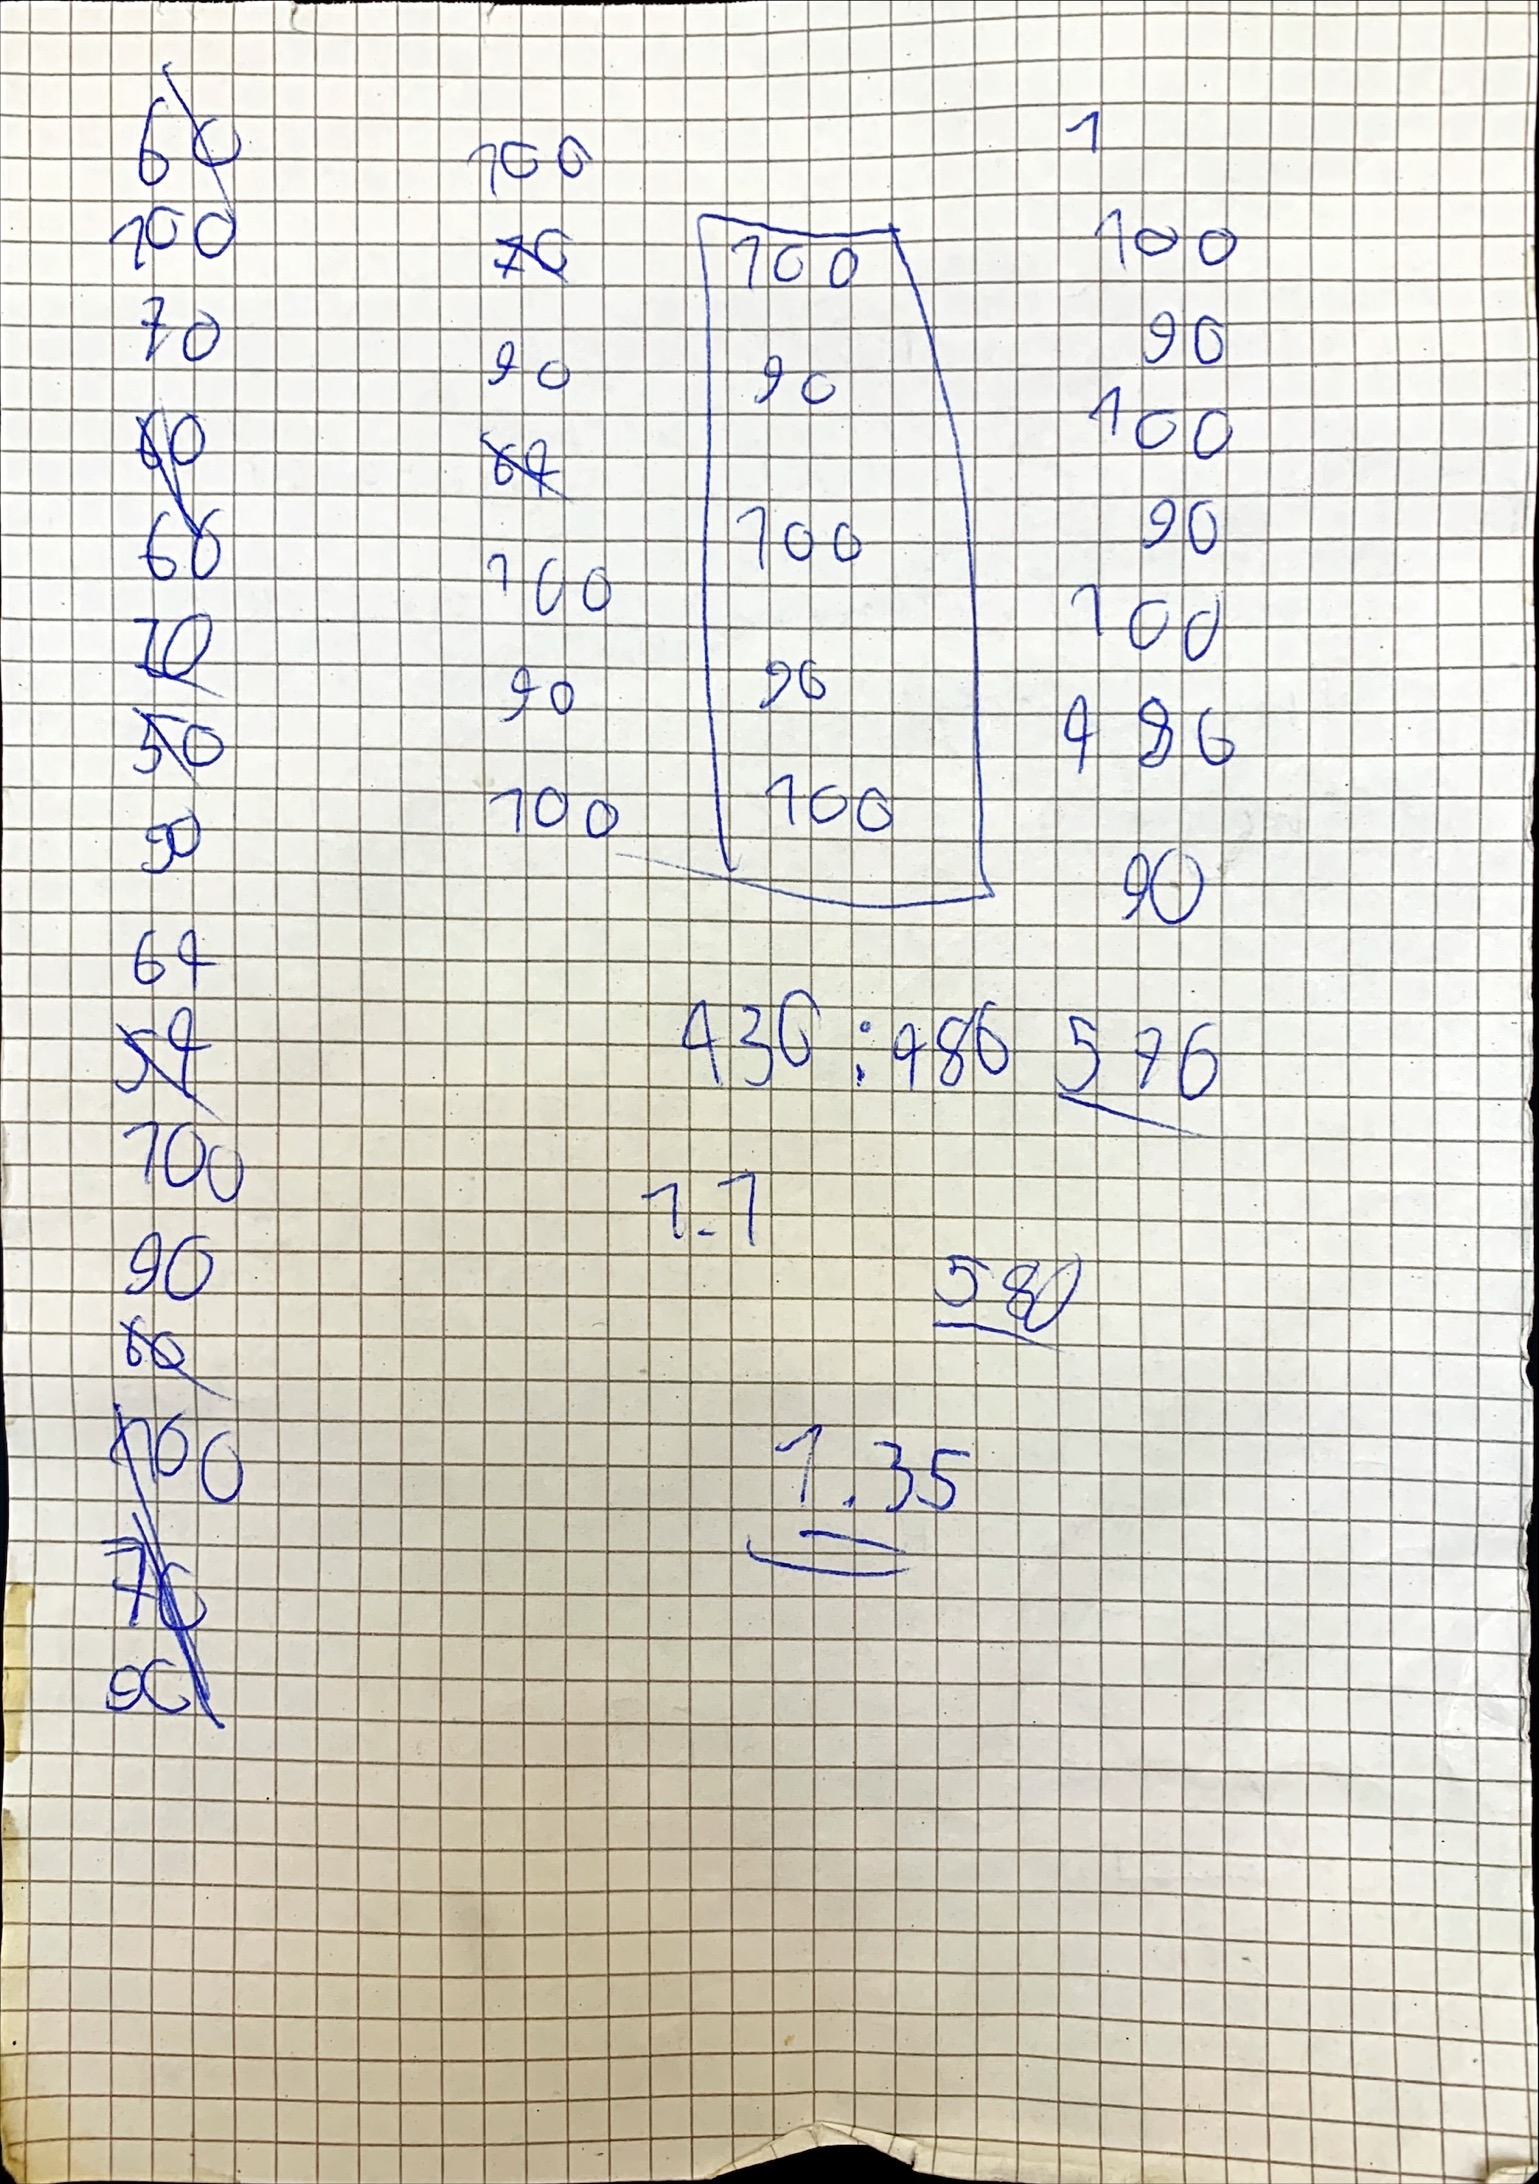 60
100
70
60
60
70
50
90
64
54
100
90
60
100
70
90
100
70
90
64
100
90
100
100
90
100
90
100
1
100
90
100
90
100
480
90
430 : 480 570
1.1
580
1.35